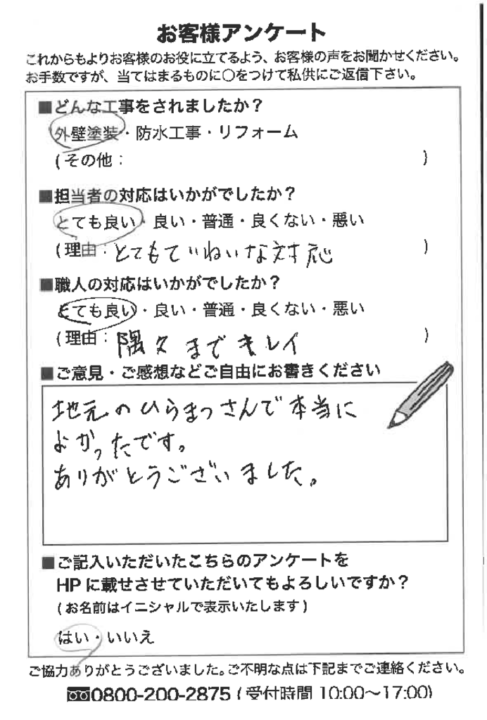 お客様アンケート
これからもよりお客様のお役に立てるよう、お客様の声をお聞かせください。
お手数ですが、当てはまるものに○をつけて私供にご返信下さい。
■どんな工事をされましたか？
外壁塗装・防水工事・リフォーム
(その他： )
■担当者の対応はいかがでしたか？
とても良い・良い・普通・良くない・悪い
(理由：とてもていねいな対応 )
■職人の対応はいかがでしたか？
とても良い・良い・普通・良くない・悪い
(理由：隅々までキレイ )
■ご意見・ご感想などご自由にお書きください
地元のひらまつさんで本当に
よかったです。
ありがとうございました。
■ご記入いただいたこちらのアンケートを
HPに載せさせていただいてもよろしいですか？
(お名前はイニシャルで表示いたします)
はい・いいえ
ご協力ありがとうございました。ご不明な点は下記までご連絡ください。
0800-200-2875 (受付時間 10:00〜17:00)